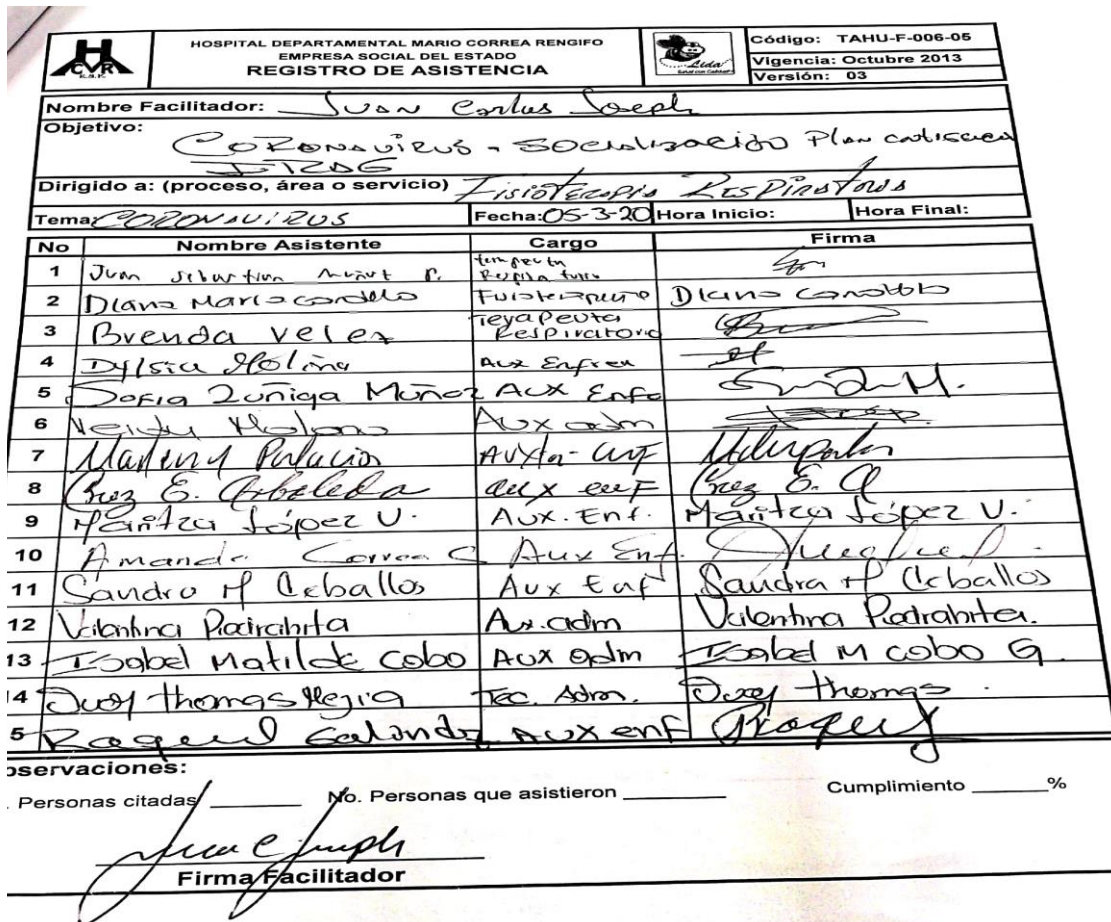 HOSPITAL DEPARTAMENTAL MARIO CORREA RENGIFO
EMPRESA SOCIAL DEL ESTADO
REGISTRO DE ASISTENCIA
Código: TAHU-F-006-05
Vigencia: Octubre 2013
Versión: 03
Nombre Facilitador: Juan Carlos Joseph
Objetivo:
CORONAVIRUS - Socialización Plan
IRAG
Dirigido a: (proceso, área o servicio) Fisioterapia Respiratoria
Tema: CORONAVIRUS Fecha: 05-3-20 Hora Inicio: Hora Final:
No Nombre Asistente Cargo Firma
1 Juan Sebastian
2 Diana Maria Fisioterapeuta Diana
3 Brenda Velez Terapeuta Respiratoria
4 Molina Aux Enfren
5 Sofia Zuñiga Muñoz Aux Enfe
6 Aux adm
7 Palacios
8 Cruz E. Arboleda aux enf Cruz E. A
9 Maritza López V. Aux. Enf. Maritza López V.
10 Amanda Correa C Aux Enf.
11 Sandra M Ceballos Aux Enf Sandra M Ceballos
12 Valentina Piedrahita Aux. adm Valentina Piedrahita.
13 Isabel Matilde Cobo Aux adm Isabel M Cobo G.
14 thomas Mejia Tec. Adm. thomas.
5 Raquel Galindo Aux enf Raquel
bservaciones:
. Personas citadas No. Personas que asistieron Cumplimiento %
Firma Facilitador